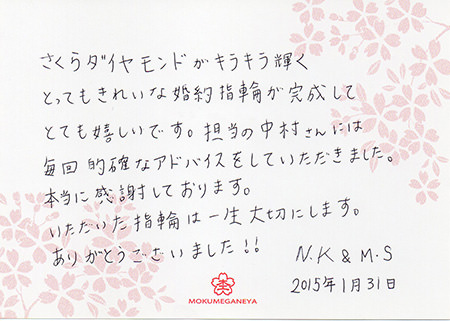 さくらダイヤモンドがキラキラ輝く
とってもきれいな婚約指輪が完成して
とても嬉しいです。担当の中村さんには
毎回的確なアドバイスをしていただきました。
本当に感謝しております。
いただいた指輪は一生大切にします。
ありがとうございました!!
N.K & M.S
2015年1月31日
MOKUMEGANEYA